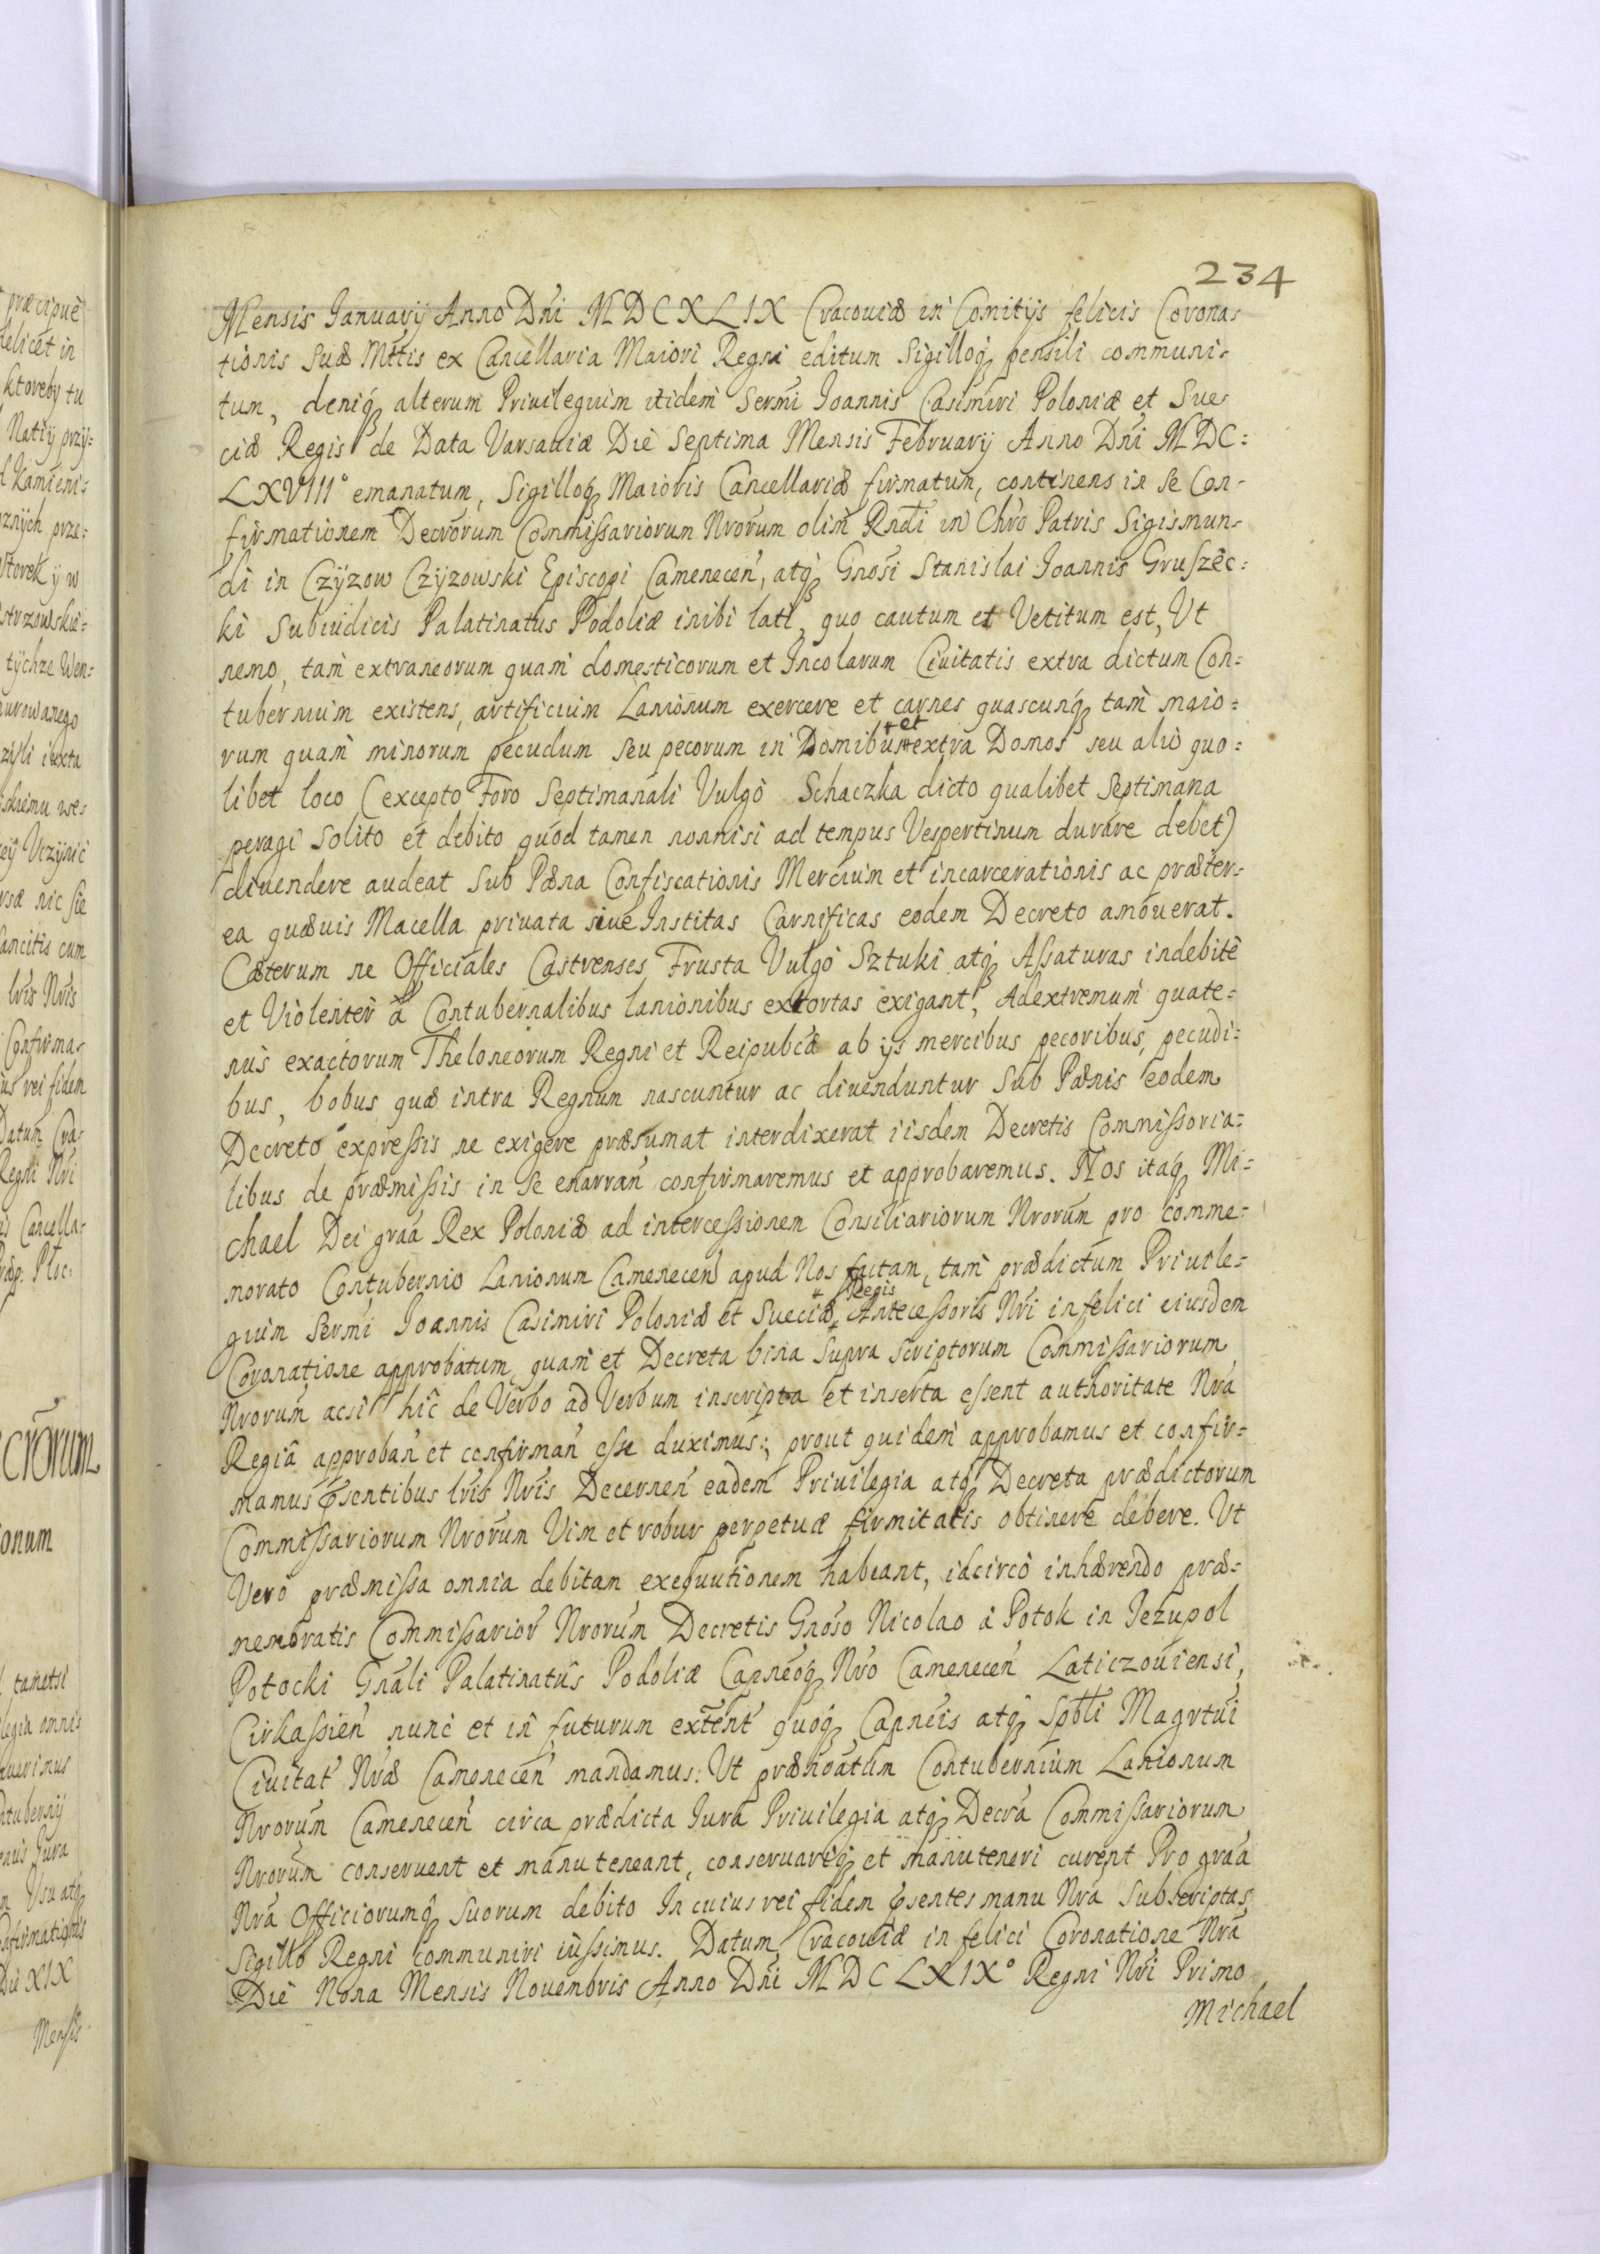 234
Mensis Ianuarij Anno Dni MDCXLIX Cracoviæ in Comitijs felicis Corona-
tionis Suæ Mttis ex Cancellaria Maiori Regni editum Sigilloq; pensili communi-
tum, deniq; alterum Priuilegium itidem Sermi Ioannis Casimiri Poloniæ et Sue-
ciæ Regis de Data Varsauiæ Die Septima Mensis February Anno Dni MDC=
LXVIII° emanatum, Sigilloq; Maioris Cancellariæ firmatum, continens in se Con-
firmationem Decrorum Commissariorum Nrorum olim Rndi in Chro Patris Sigismun-
di in Czyzow Czyzowski Episcopi Camenecen, atq; Gnosi Stanislai Ioannis Gruszec=
ki Subiudicis Palatinatus Podoliæ inibi lati, quo cautum et Vetitum est, Ut
nemo, tam extraneorum quam domesticorum et Incolarum Ciuitatis extra dictum Con=
tubernium existens, artificium Lanionum exercere et carnes quascunq; tam maio=
rum quam minorum pecudum seu pecorum in Domibus + et extra Domos seu alio quo=
libet loco (excepto Foro Septimanali Vulgò Schaczka dicto qualibet Septimana
peragi solito et debito quod tamen nonnisi ad tempus Vespertinum durare debet)
diuendere audeat Sub Pæna Confiscationis Mercium et incarcerationis ac præter-
ea quæuis Macella priuata siue Institas Carnificas eodem Decreto amouerat.
Cæterum ne Officiales Castrenses Frusta Vulgò Sztuki atq; Assaturas indebitè
et Violenter à Contubernalibus lanionibus extortas exigant, Adextremum quate=
nus exactorum Theloneorum Regni et Reipubcæ ab ijs mercibus pecoribus, pecudi=
bus, bobus quæ intra Regnum nascuntur ac diuenduntur Sub Pænis eodem
Decreto expressis ne exigere præsumat interdixerat iisdem Decretis Commissoria=
libus de præmissis in se enarran confirmaremus et approbaremus. Nos itaq; Mi=
chael Dei graa Rex Poloniæ ad intercessionem Consiliariorum Nrorum pro comme=
morato Contubernio Lanionum Camenecen apud Nos factam, tam prædictum Priuile=
gium Sermi Ioannis Casimiri Poloniæ et Sueciæ + Regis Antecessoris Nri in felici eiusdem
Coronatione approbatum, quam et Decreta bina Supra scriptorum Commissariorum
Nrorum acsi hîc de Verbo ad Verbum inscripta et inserta essent authoritate Nra
Regiâ approban et confirman esse duximus; prout quidem approbamus et confir=
mamus psentibus lris Nris Decernen eadem Priuilegia atq; Decreta prædictorum
Commissariorum Nrorum Vim et robur perpetuæ firmitatis obtinere debere. Ut
Verò præmissa omnia debitam exequutionem habeant, idcircò inhærendo præ-
memoratis Commissarior Nrorum Decretis Gnoso Nicolao à Potok in Iezupol
Potocki Gnali Palatinatûs Podoliæ Capneoq; Nro Camenecen Laticzouiensi,
Cirkassien nunc et in futurum extent quoq; Capneis atq; Spbli Magrtui
Ciuitat Nræ Camenecen mandamus: Ut prænoatum Contubernium Lanionum
Nrorum Camenecen circa prædicta Iura Priuilegia atq; Decra Commissariorum
Nrorum conseruent et manuteneant, conseruariq; et manuteneri curent Pro graa
Nra Officiorumq; Suorum debito In cuius rei fidem psentes manu Nra Subscriptas,
Sigillo Regni communiri iussimus. Datum Cracouiæ in felici Coronatione Nra
Die Nona Mensis Nouembris Anno Dni MDCLXIX° Regni Nri Primo
Michael